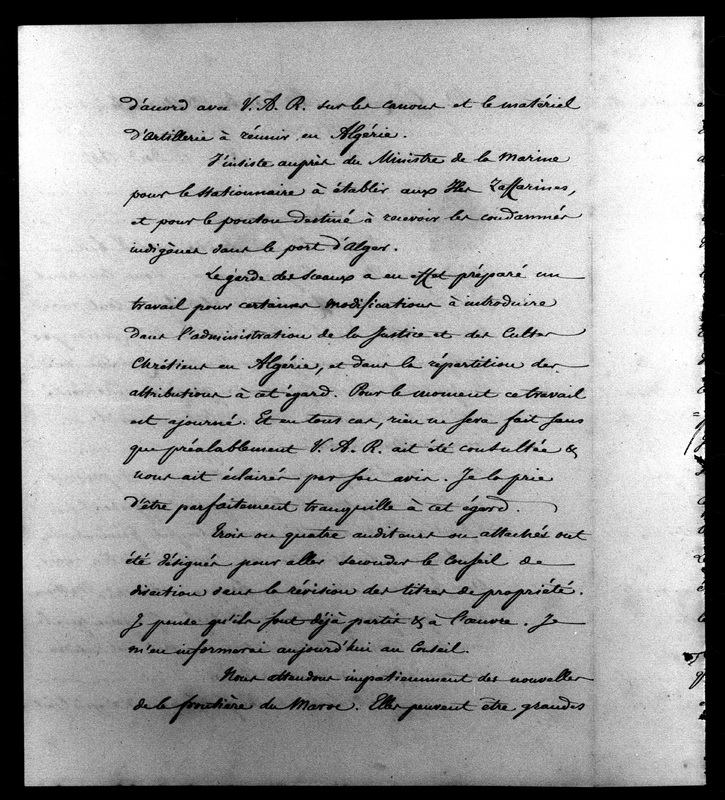 d'accord avec V. A. R. sur les canons et le matériel
d'Artillerie à réunir en Algérie.
J'insiste auprès du Ministre de la Marine
pour le Stationnaire à établir aux Iles Zaffarines,
et pour le ponton destiné à recevoir les condamnés
indigènes dans le port d'Alger.
Le garde des sceaux a en effet préparé un
travail pour certaines modifications à introduire
dans l'administration de la Justice et des Cultes
Chrétiens en Algérie, et dans la répartition des
attributions à cet égard. Pour le moment ce travail
est ajourné. Et en tous cas, rien ne sera fait sans
que préalablement V. A. R. ait été consultée &
nous ait éclairés par son avis. Je la prie
d'être parfaitement tranquille à cet égard.
Trois ou quatre auditeurs ou attachés ont
été désignés pour aller seconder le Conseil de
direction dans la révision des titres de propriété.
Je pense qu'ils sont déjà partis & à l'œuvre. Je
m'en informerai aujourd'hui au Conseil.
Nous attendons impatiemment des nouvelles
de la frontière du Maroc. Elles peuvent être grandes